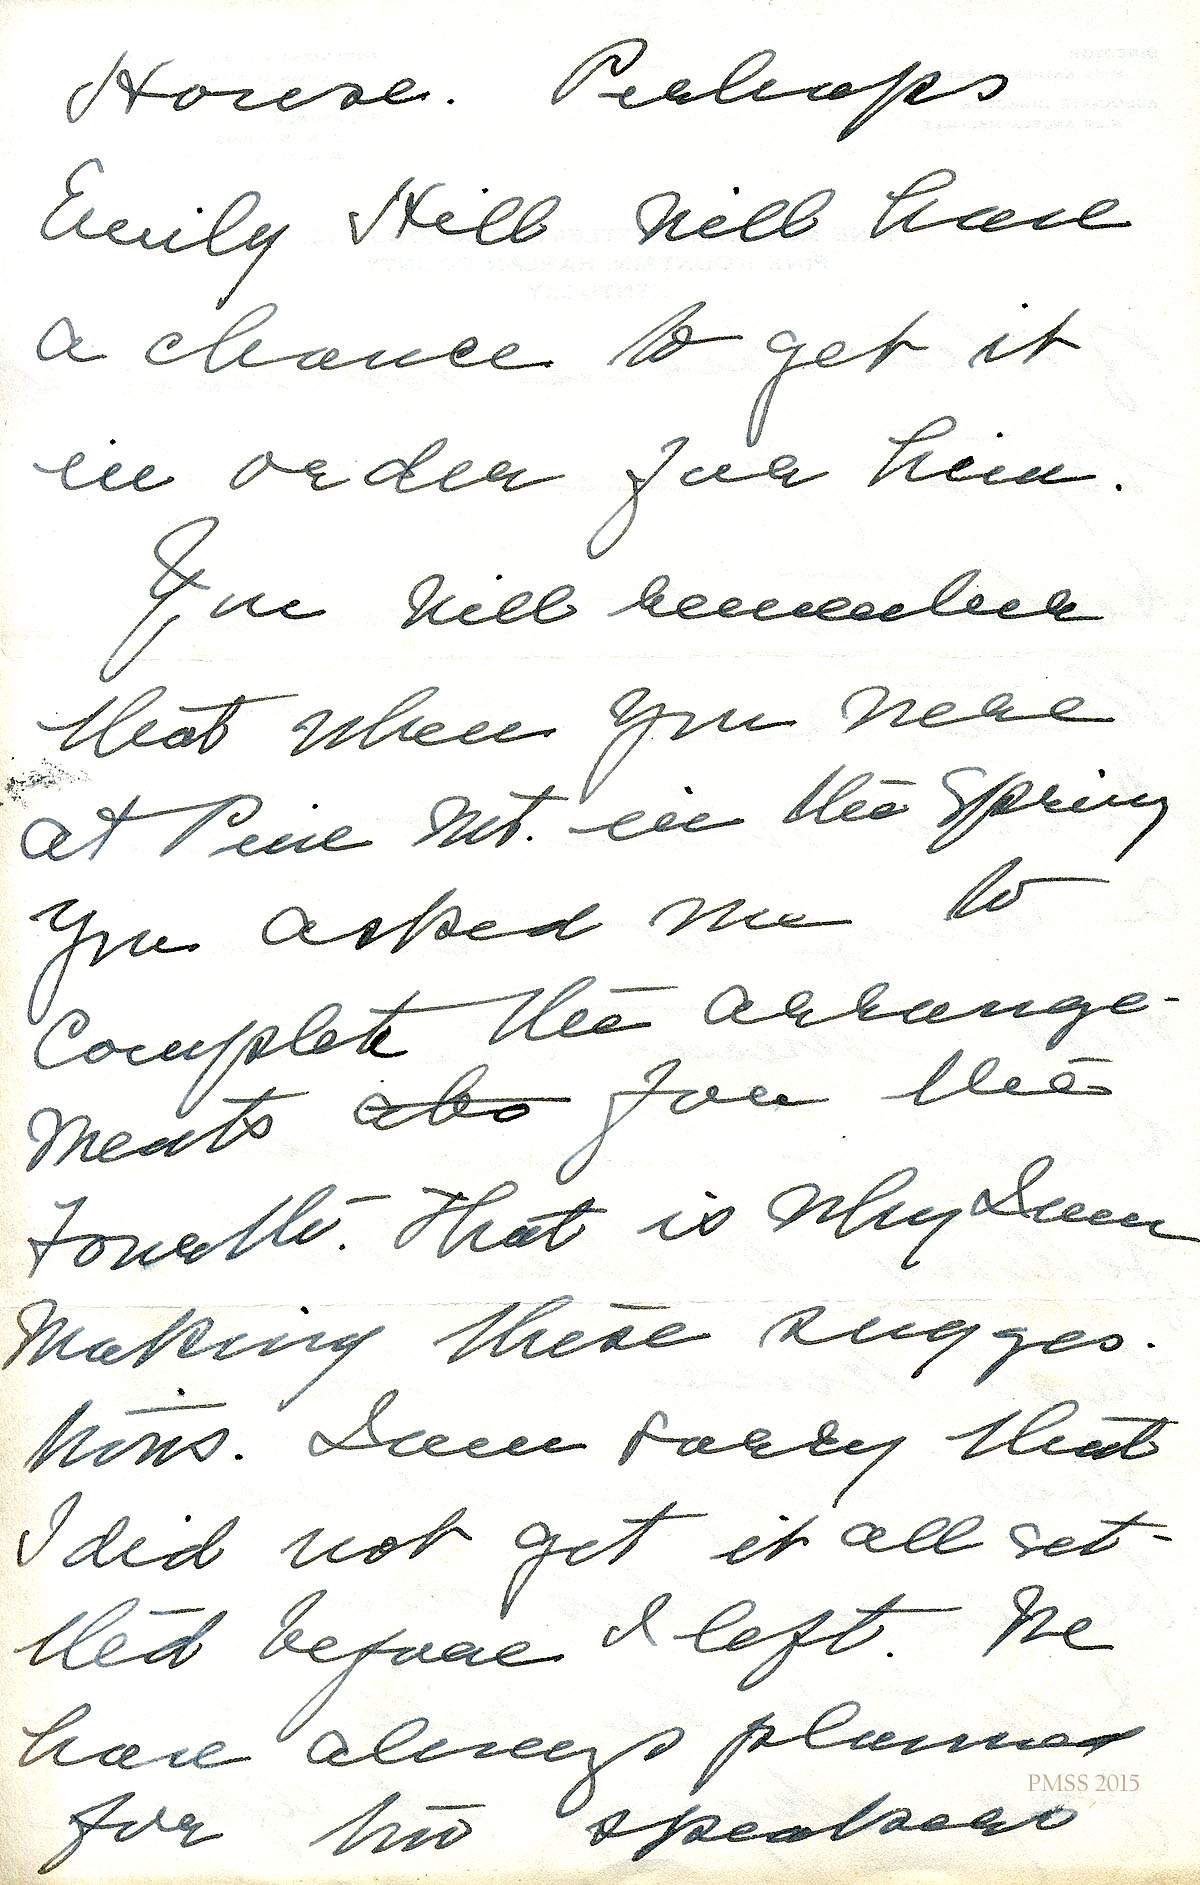 House. Perhaps
Emily Hill will have
a chance to get it
in order for him.
You will remember
that when you were
at Pine Mt. in the Spring
you asked me to
complete the arrange-
ments also for the
Fourth. That is why I am
making these sugges-
tions. I am sorry that
I did not get it all set-
tled before I left. We
have always planned
for two speakers
PMSS 2015